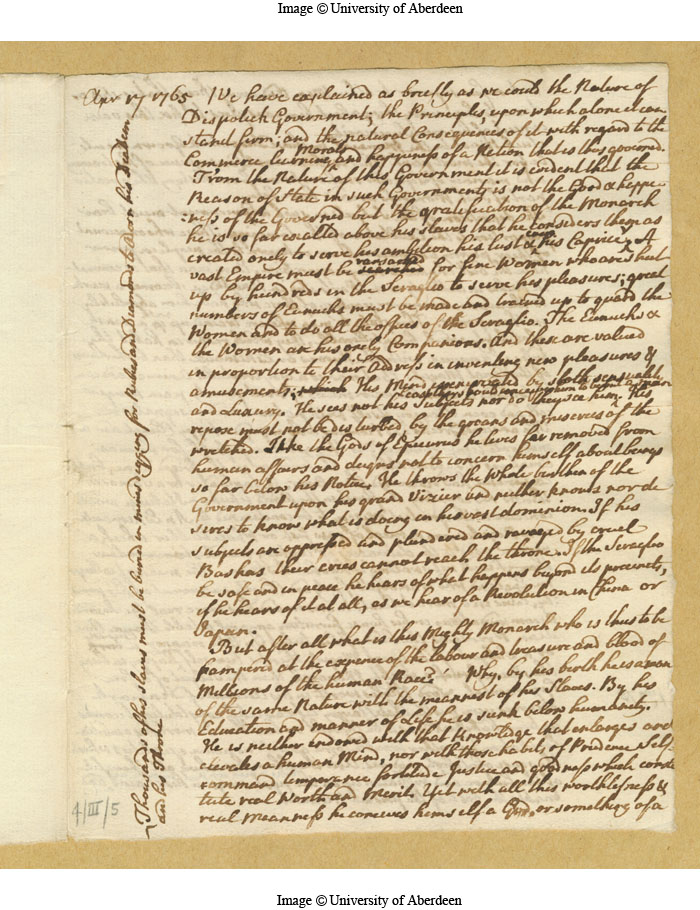 Image © University of Aberdeen
Apr 17 1765 We have explained as briefly as we could the Nature of
Dispotick Government; the Principles, upon which alone it can
stand firm; and the natural Consequences of it with regard to the
Morals
Commerce Learning and happyness of a Nation that is thus governed.
From the Nature of this Government it is evident that the
Reason of State in such Governments is not the Good & happi-
:ness of the Governed but the gratification of the Monarch
he is so far exalted above his slaves that he considers them as
created onely to serve his ambition his lust & his Caprice. A
ransacked
vast Empire must be searched for fine Women who are shut
up by hundreds in the Seraglio to serve his pleasures; great
numbers of Eunuchs must be made and trained up to guard the
Women and to do all the offices of the Seraglio. The Eunuchs &
the Women are his onely Companions. And these are valued
in proportion to their Address in inventing new pleasures &
amusements; which His Mind enervated by sloth sensuality
and Luxury. He sees not his Subjects nor do they see him. His
repose must not be disturbed by the groans and miseries of the
wretched. Like the Gods of Epicurus he lives far removed from
human affairs and deigns not to concern himself about beings
so far below his Notice. He throws the Whole burthen of the
Government upon his grand Vizier and neither knows nor de
sires to know what is doing in his vast dominion. If his
subjects are oppressed and plundered and ravaged by cruel
Bashas their cries cannot reach the throne. If the Seraglio
be safe and in peace he hears of what happens beyond its precincts,
if he hears of it at all, as we hear of a Revolution in China or
Japan.
But after all what is this Mighty Monarch who is thus to be
pampered at the expence of the labour and treasure and blood of
Millions of the human Race? Why, by his birth he is a man
of the same Nature with the meanest of his Slaves. By his
Education and manner of Life he is sunk below humanity.
He is neither endowed with that knowledge that enlarges and
elevates a human Mind, nor with those habits of Prudence Self
command temperance fortitude Justice and goodness which consti
tute real Worth and Merit. Yet with all this worthlessness &
real Meanness he conceives himself a God, or something of a
Thousands of his slaves must be buried in mines digging for Rubies and Diamonds to adorn his Diadem
and his Throne
4/III/5
Image © University of Aberdeen